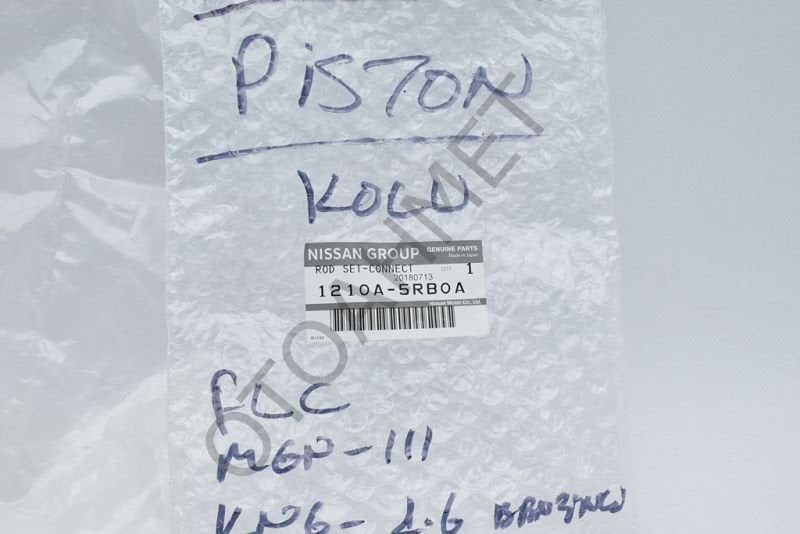 PiSTON
KOLU
NISSAN GROUP GENUINE PARTS
Made in Japan
ROD SET-CONNECT QTY 1
20180713
1210A-5RB0A
Nissan Motor Co., Ltd.
FLC
MGN-111
KNG- 1.6 BENZİNLİ
OTOAHMET